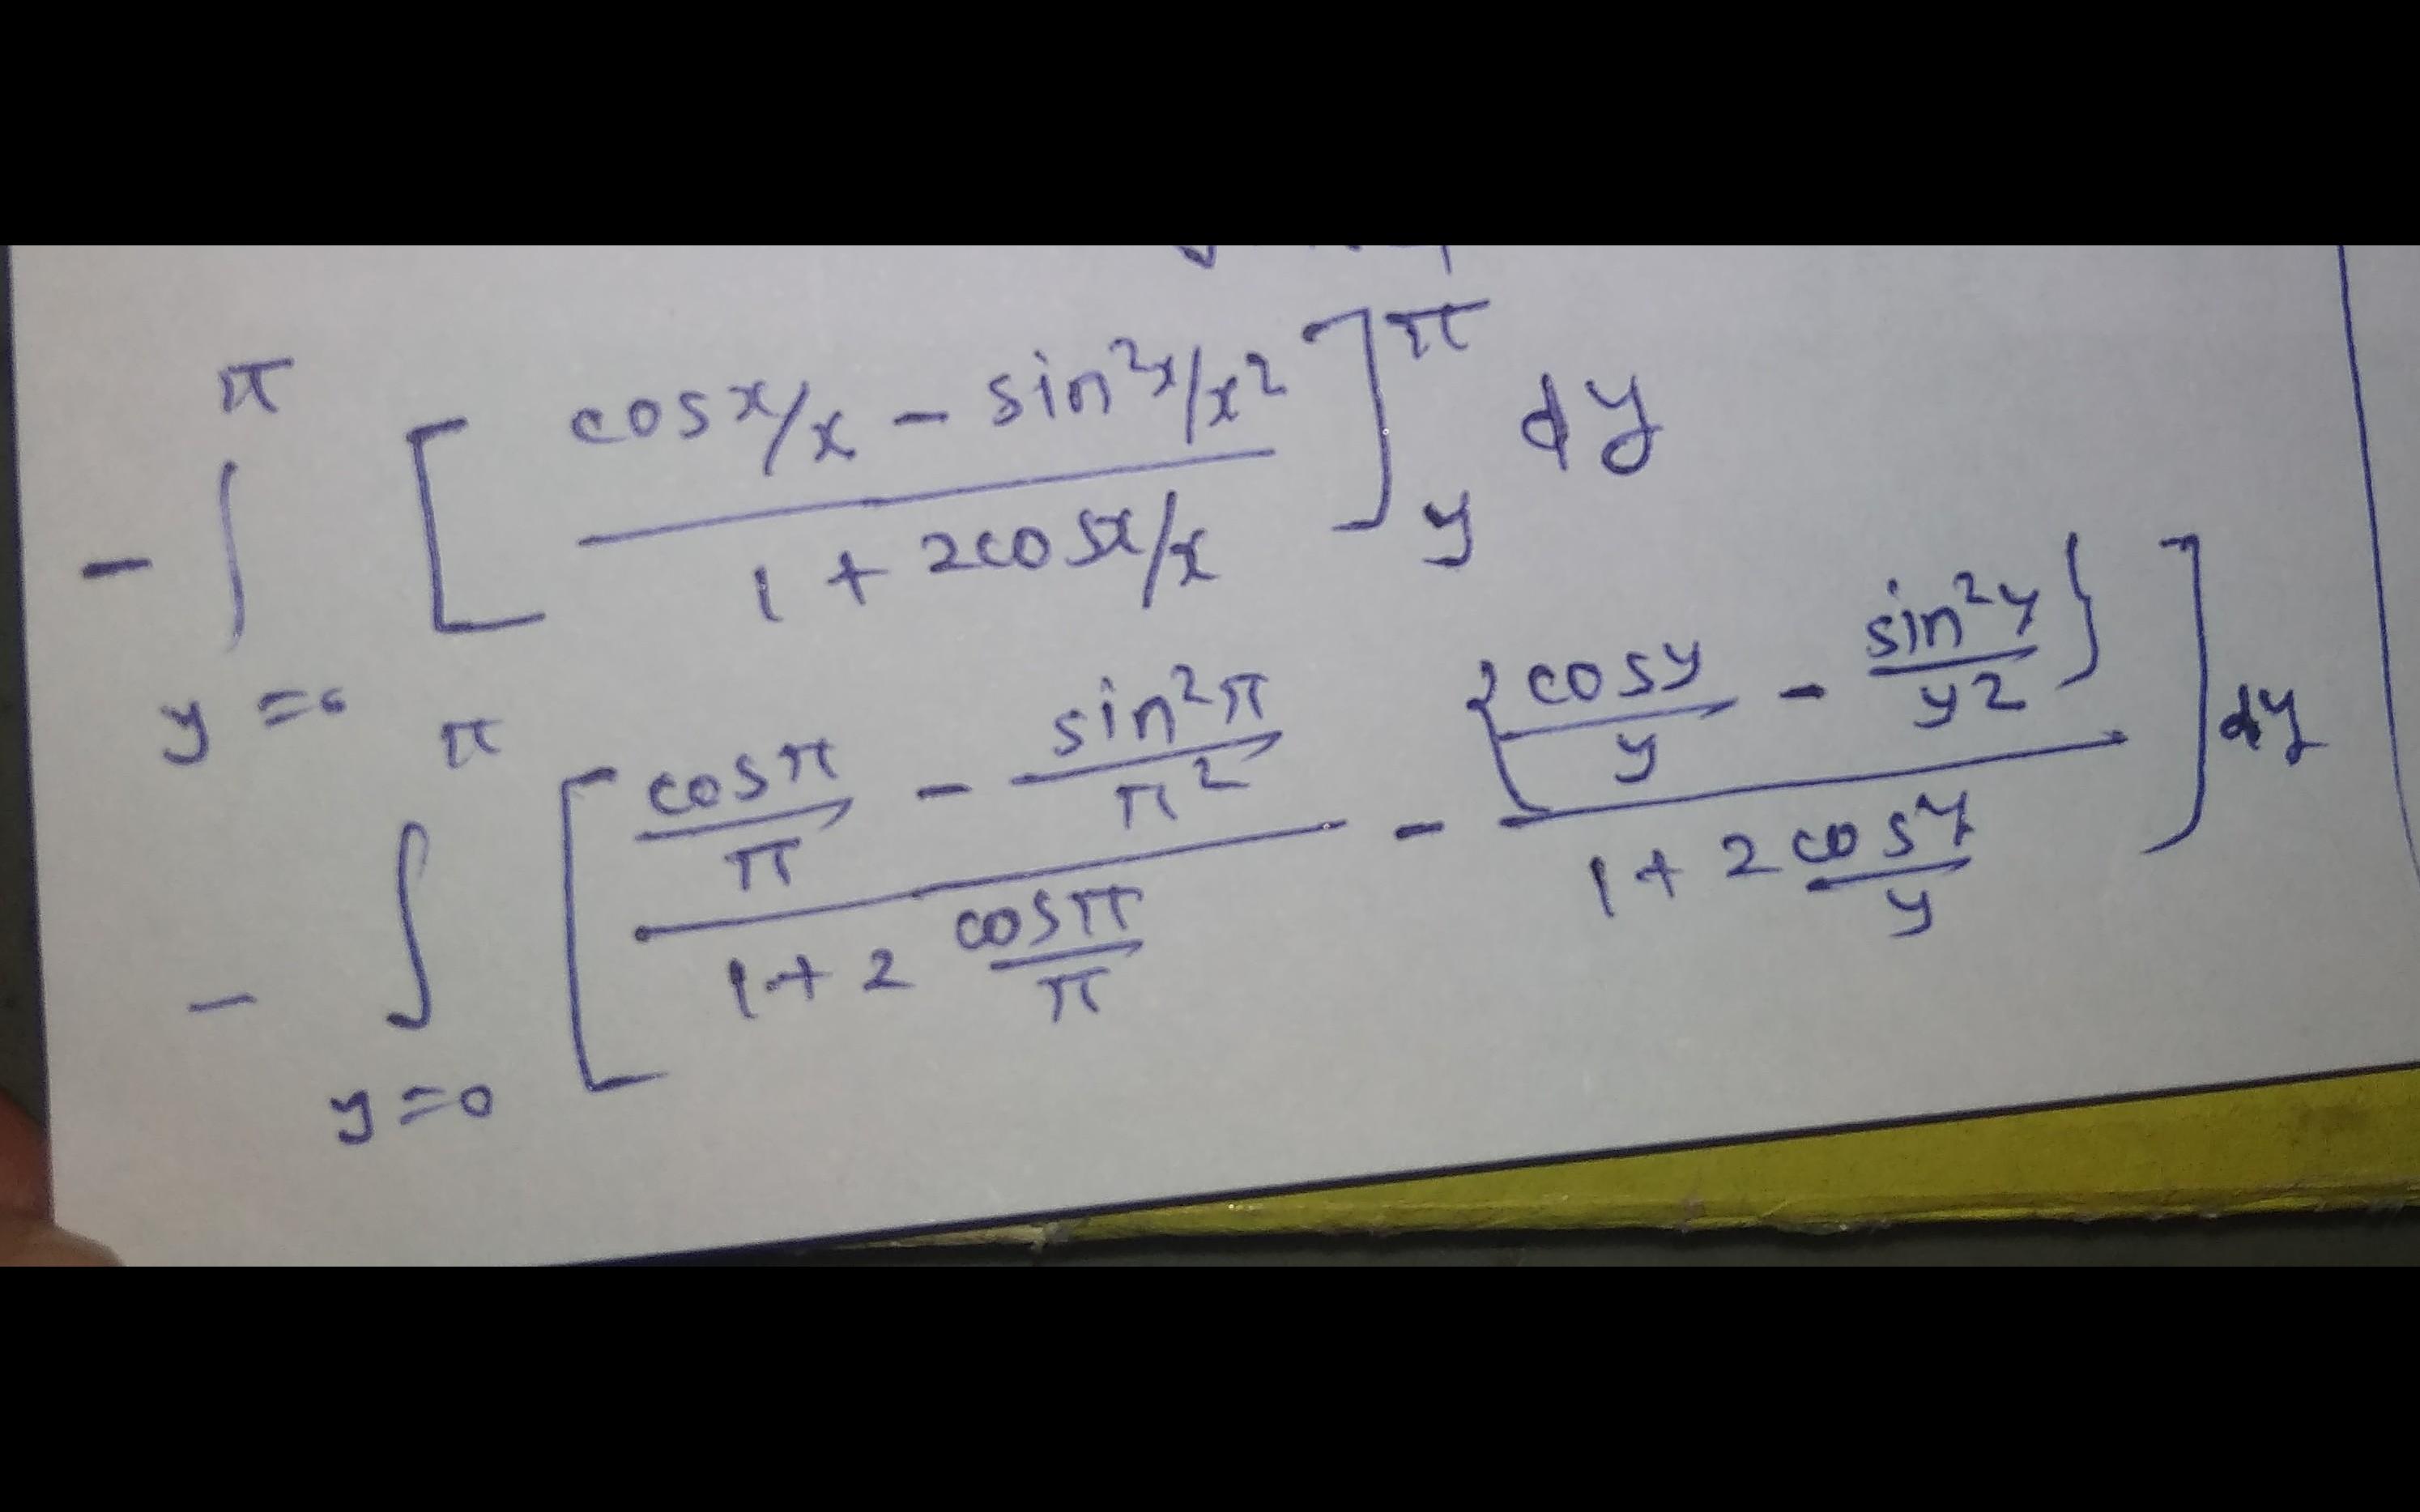 - ∫_{y=0}^{π} [ (cosx/x - sin²x/x²) / (1 + 2cosx/x) ]_{y}^{π} dy
- ∫_{y=0}^{π} [ (cosπ/π - sin²π/π²) / (1 + 2 cosπ/π) - {cosy/y - sin²y/y²} / (1 + 2 cosy/y) ] dy